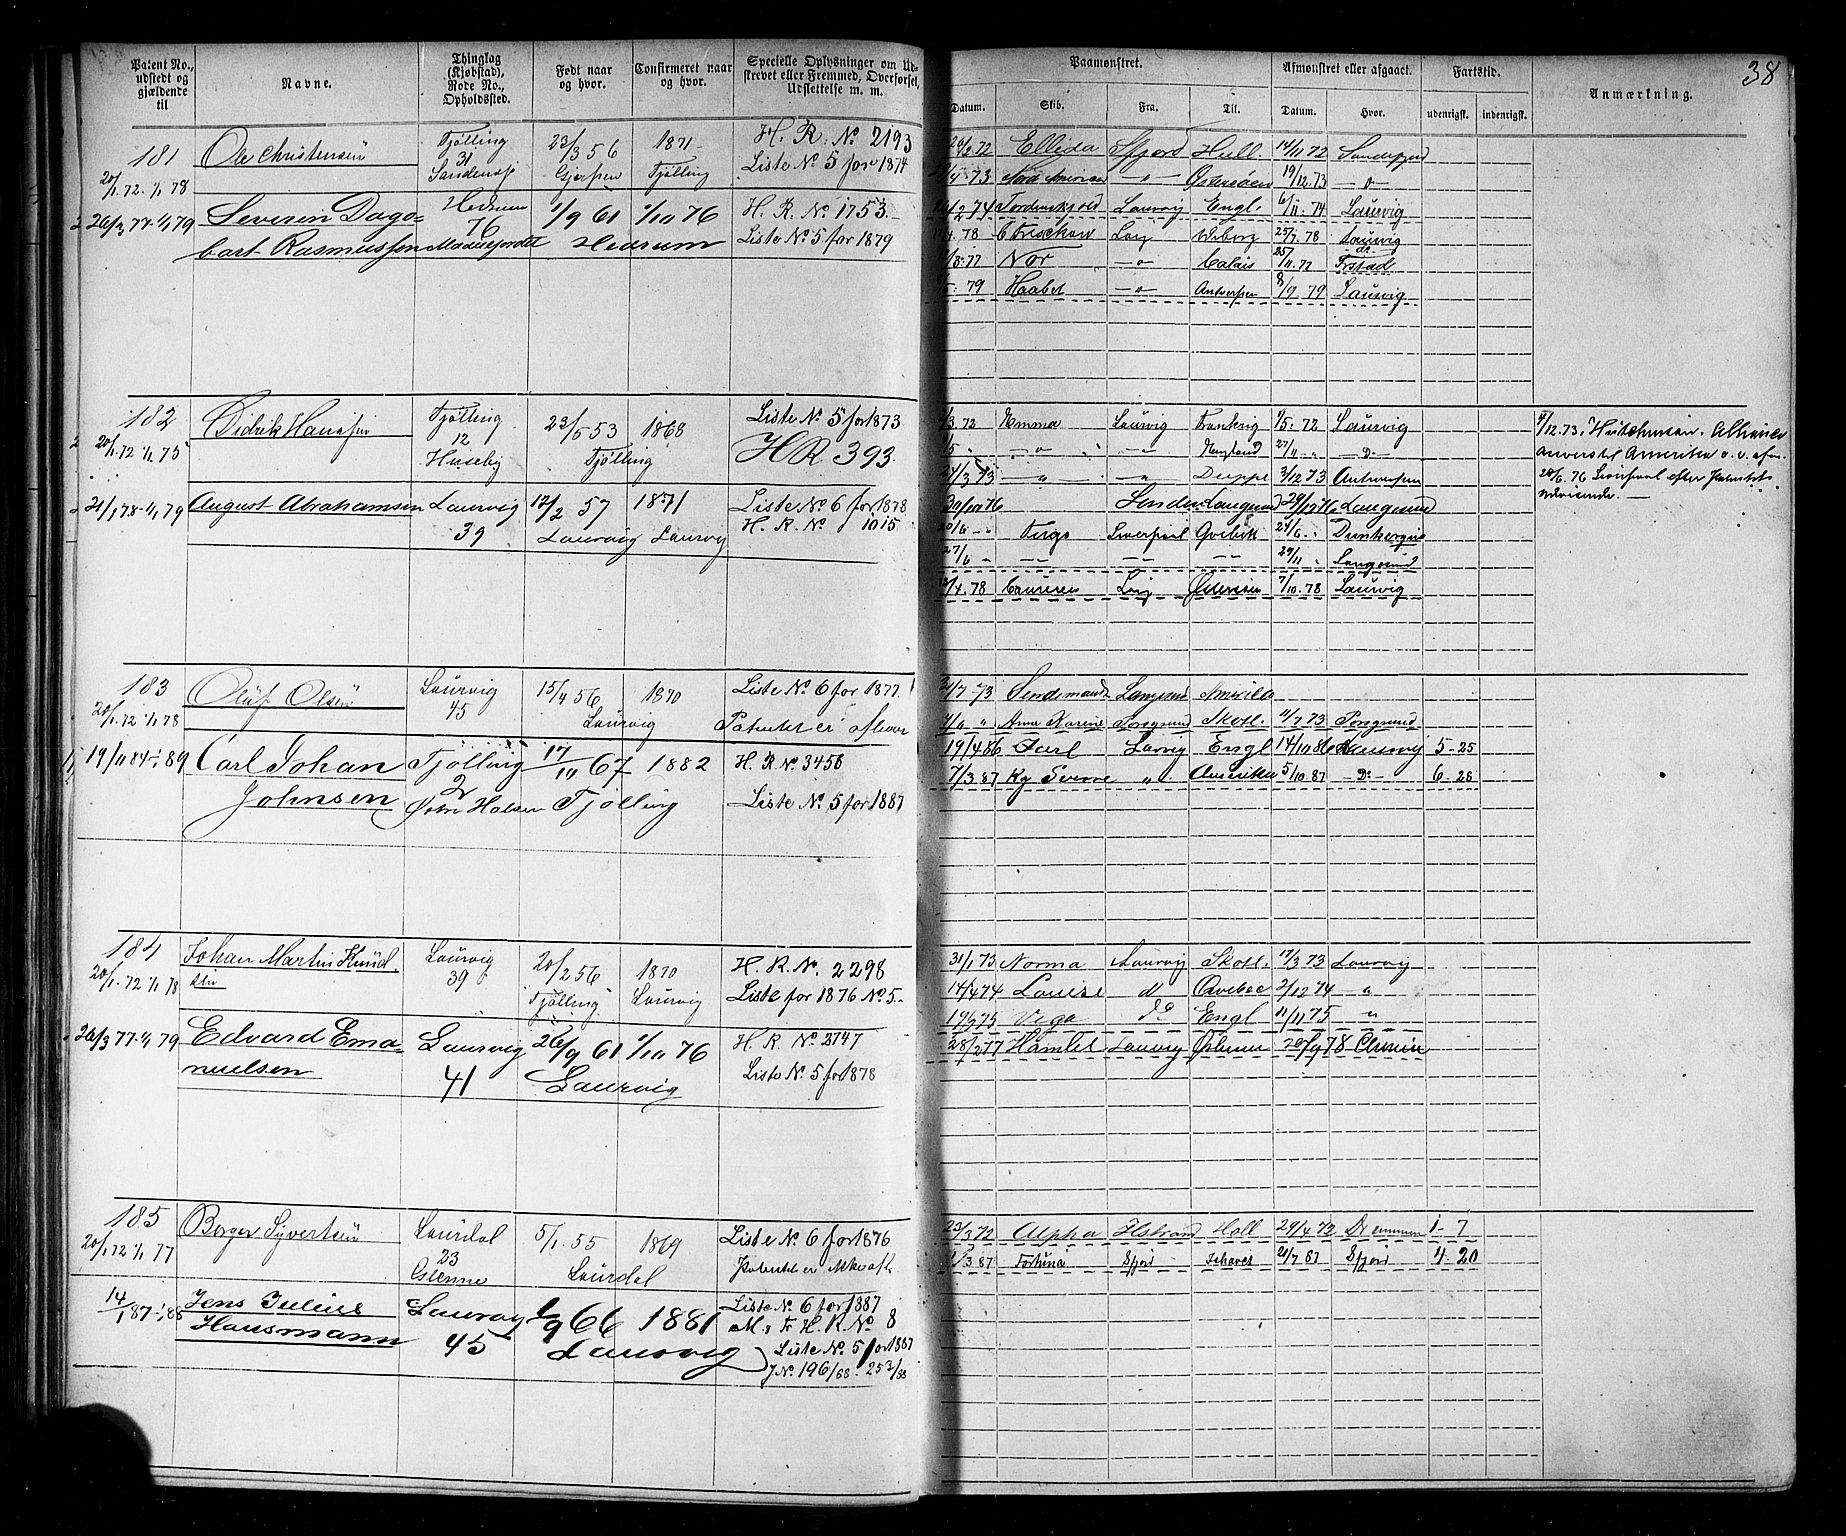 38
Patent No., udstedt og gjældende til
Navne.
Thinglag (Kjøbstad), Rode No., Opholdssted.
Født naar og hvor.
Confirmeret naar og hvor.
Specielle Oplysninger om Udskrevet eller Fremmed, Overførsel, Udslettelse m. m.
Paamønstret.
Afmønstret eller afgaaet.
Fartstid.
Anmærkning.
Datum. Skib. Fra. Til. Datum. Hvor. udenrigsk. indenrigsk.
181 Ole Christensen Tjølling 31 23/3 56 1871 H. R. No 2193
20/1.72. 1/1 78 Gjerpen Tjølling Liste No 5 for 1874
26/3 77-1/1 79 Severin Dago- Hedrum 76 1/9 61 1/10 76 H. R. No 1753.
bart Rasmussen Hedrum Liste No 5 for 1879
26/2 72 Ellida Sfjord Hull 14/11 72 Sandefjord
4 73 Nord American -"- Østersøen 19/12.73 -"-
2 74 Tordenskjold Laurvig Engl. 6/11. 74 Laurvig
4. 78 Wiborg 25/7. 78 Laurvig
8. 77 Nor -"- Calais 25/11. 77 Frstad
79 Haabet -"- Antwerpen 8/9 79 Laurvig
182 Didrik Hansen Tjølling 12 Huseby 23/5 53 1868 Tjølling Liste No 5 for 1873
20/1.72 1/1 75 HR 393.
21/1 78-1/1 79 August Abrahamsen Laurvig 39 12/2 57 Laurvig 1871 Laurvig Liste No 6 for 1878
H. R. No 1015
3.72 Emma Laurvig Frankrig 1/5. 72 Laurvig
England 27/11
24/3 73 Dieppe 3/12 73 Antwerpen
30/10 76 Langesund 29/12 76 Langesund
20/6 Liverpool Qvebek Dunkerque
27/6 29/11 Langesund
4.78 Østersøen 7/10.78 Laurvig
12.73. Hutchinson. Alliance
Amerika
26/6.76 Liverpool efter Patentets
udvisende. —
183 Oluf Olsen Laurvig 45 15/4 56 Laurvig 1870 Liste No 6 for 1877
20/1.72 1/1 78 Patentet er afleveret
19/11 84-1/1 89 Carl Johan Tjølling 2 17/11 67 1882 H. R. No 3456
Johnsen Østre Halsen Tjølling Liste No 5 for 1887
7 73 Langesund
Anna Karine Porsgrund Skotl. 11/7 73 Porsgrund
19/4 86 Jarl Larvig Engl 14/10 86 Laurvig 5-25
7/3 87 Kg Sverre " Amerika 5/10 87 Do 6-28
184 Johan Martin Knud- Laurvig 39 20/2 56 1870 H. R. No. 2298
20/1.72 1/1 78 sen Tjølling Laurvig Liste for 1876 No 5.
26/3 77-1/1 79 Edvard Ema- Laurvig 41 26/9 61 1/10 76 H. R. No 2747
nuelsen Laurvig Liste No 5 for 1878
31/1 73 Norma Laurvig Skotl. 17/3 73 Laurvig
14/4 74 Louise Qvebec 2/12 74 "
19/5 75 Vega do Engl 11/11 75 "
28/2 77 Hamlet Laurvig 20/9 78
185 Berger Syvertsen Laurdal 23 5/1. 55 1869 Liste No 6 for 1876
20/1 72 1/1 77 Glenne Laurdal Patentet er
14/1 87-1/1 88 Jens Julius Laurvig 45 1/9 66 1881 Liste No 6 for 1887
Hausmann Laurvig M. Fr H. R No 8
Liste No 5 for 1887
J No 196/88. 25 3/88
23/3 72 Alpha Holl 29/4 72 Drammen 1-7
3 87 Fortuna Sfjord Ishavet 21/7 87 Sfjord 4-20